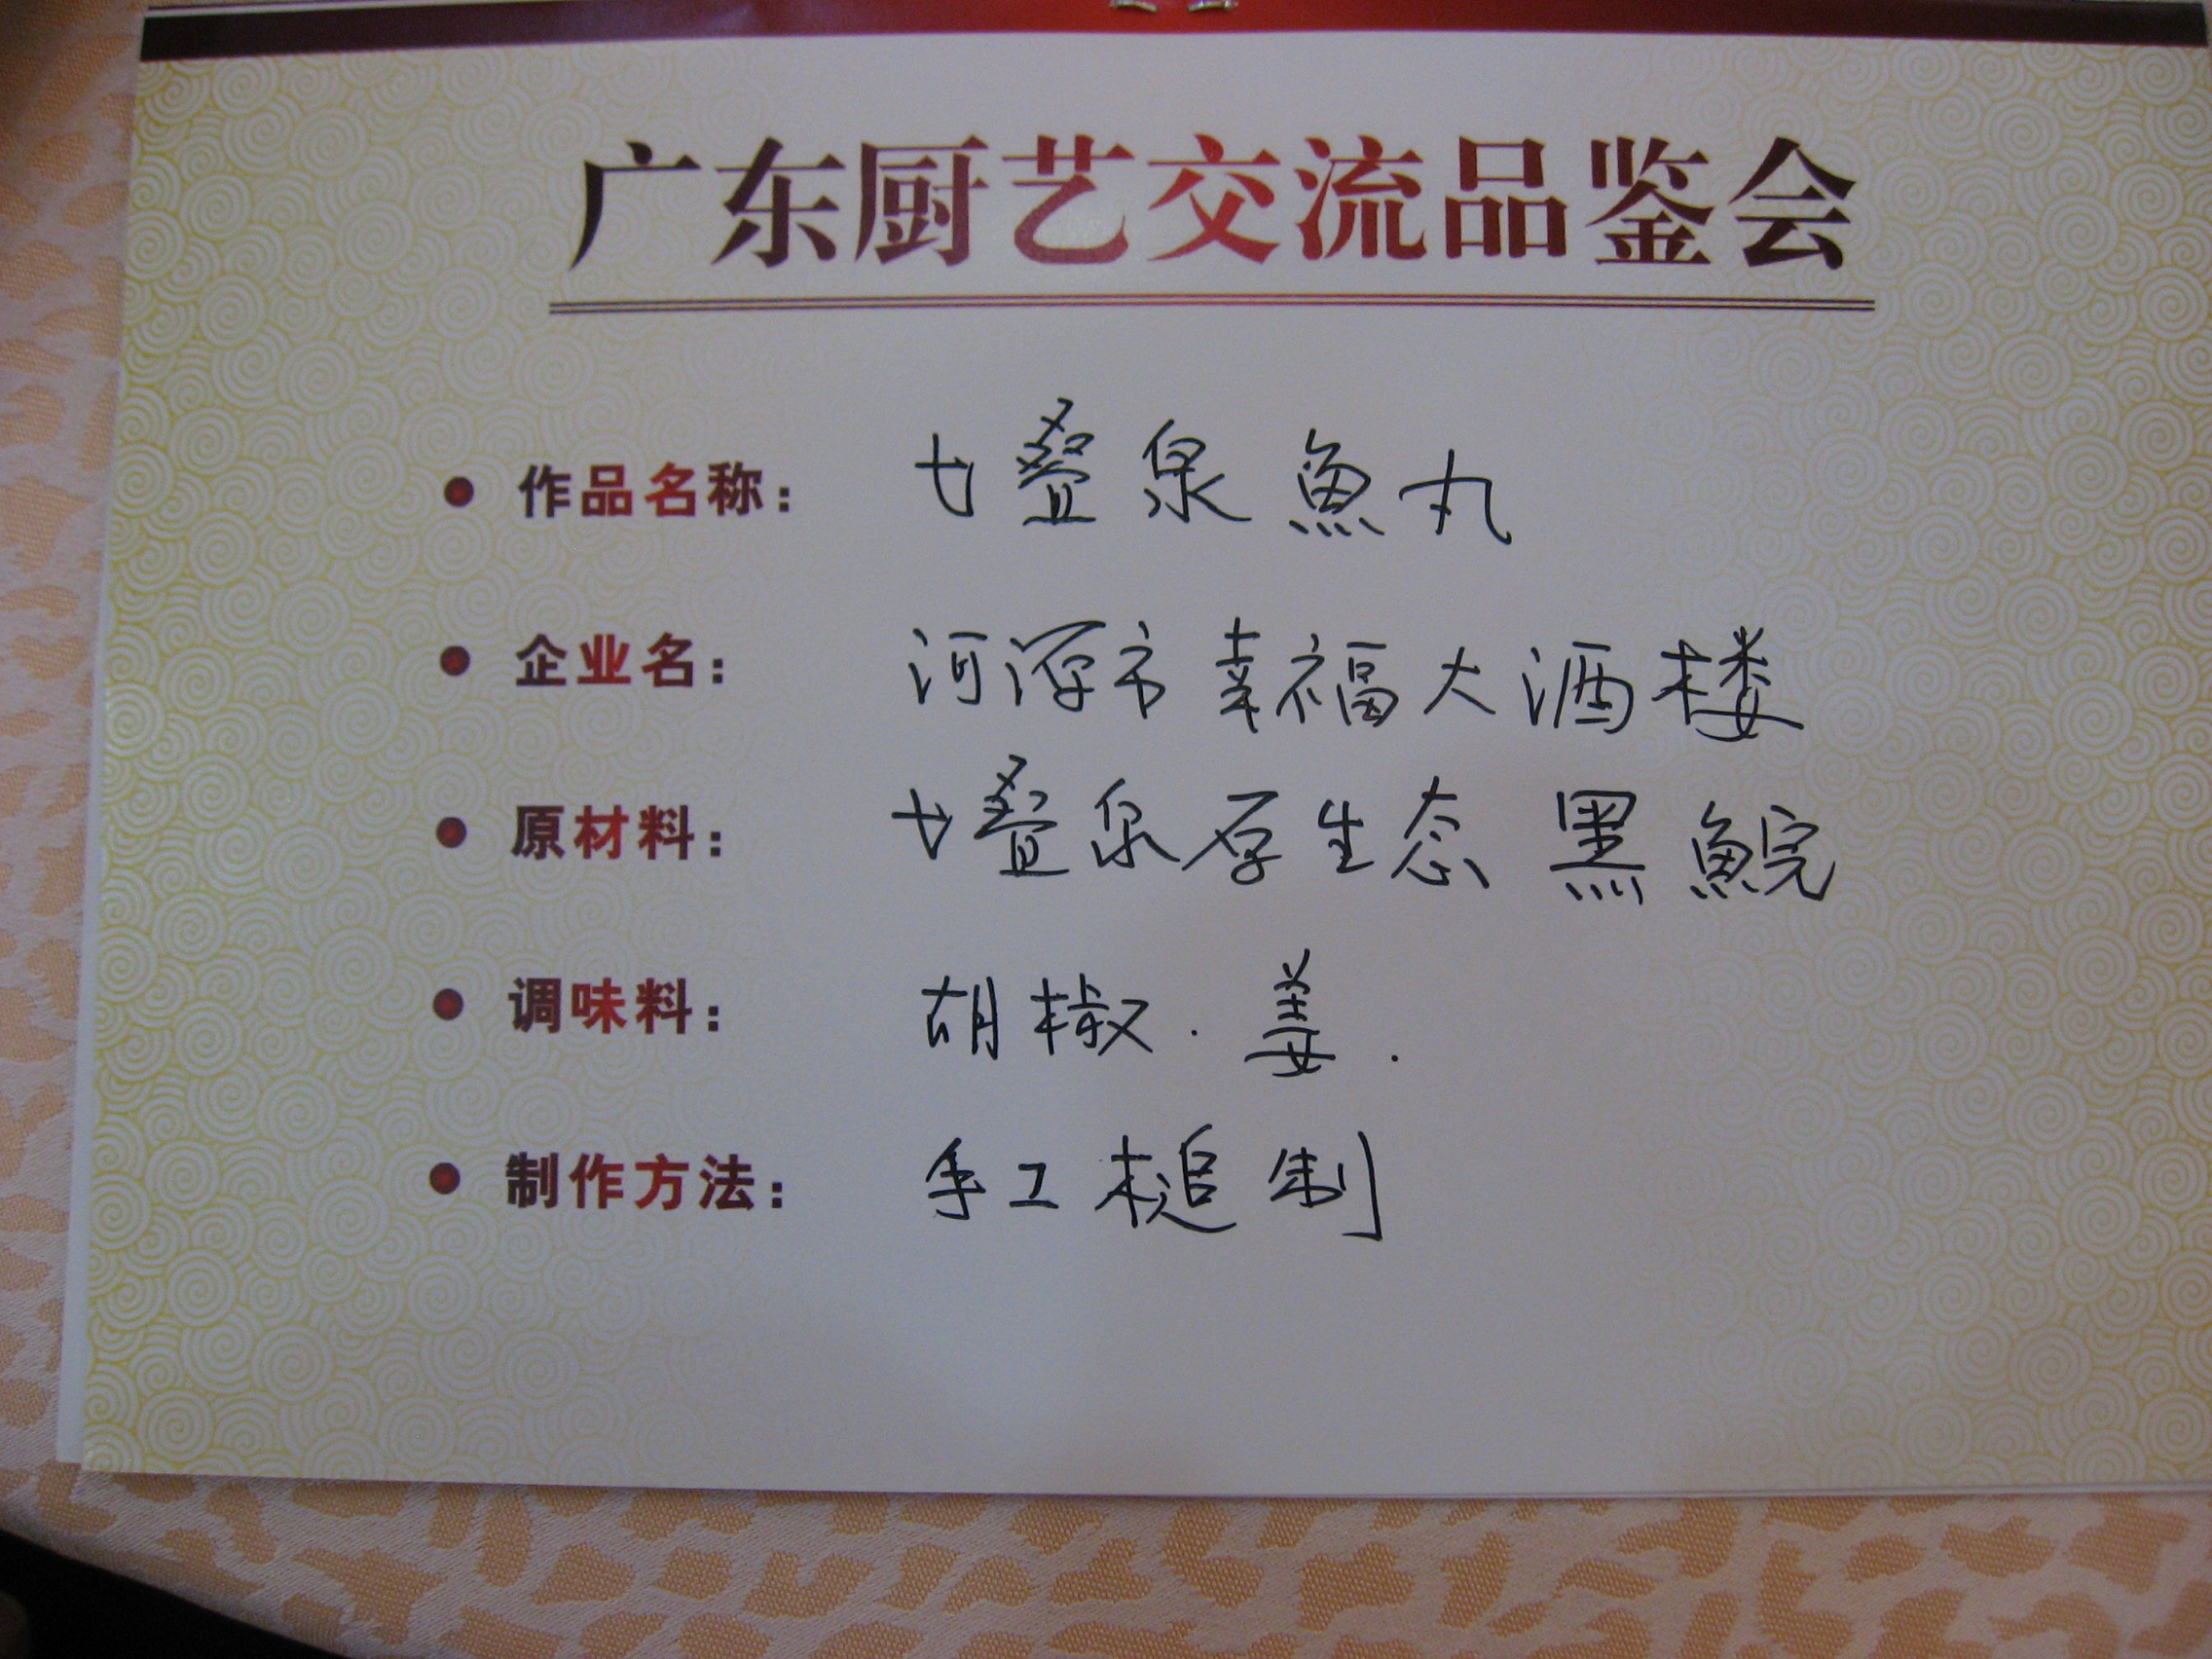 广东厨艺交流品鉴会
作品名称： 七叠泉魚丸
企业名： 河源市幸福大酒楼
原材料： 七叠泉原生态黑鯇
调味料： 胡椒.姜.
制作方法： 手工槌制